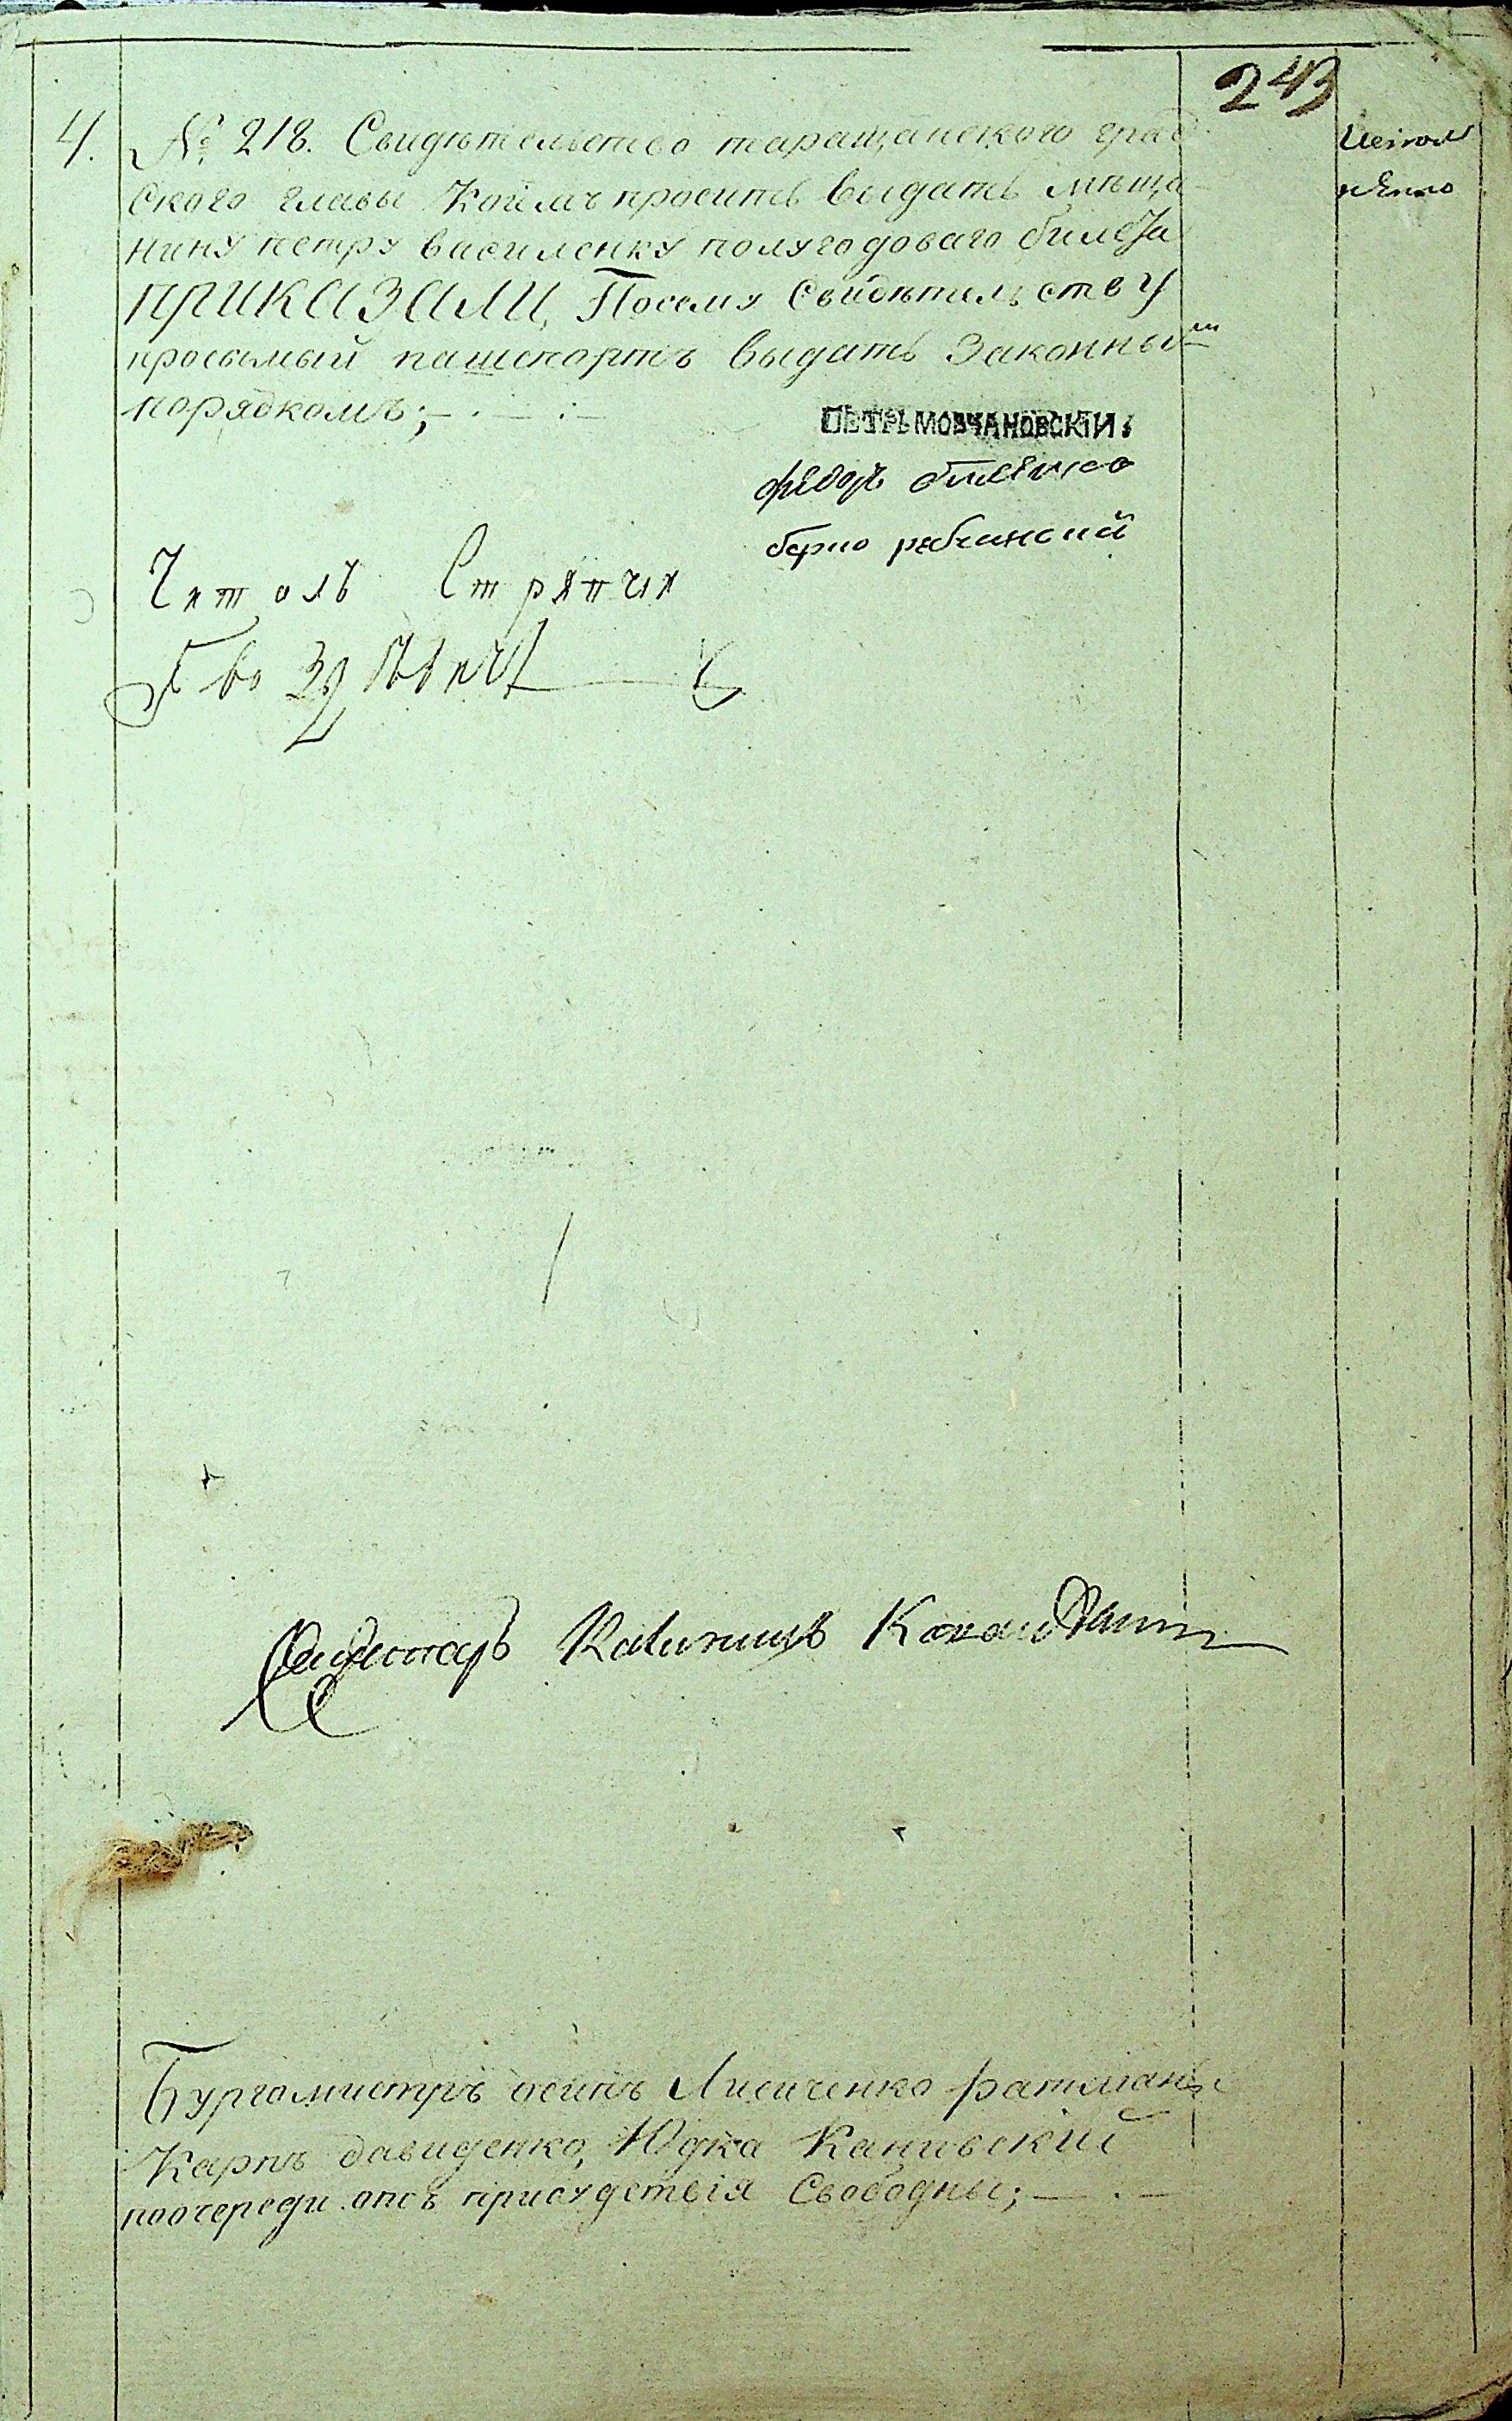 243
4. № 218. Свидѣтельство таращанского град
ского главы коимъ проситъ выдать мѣща
нину петру василенку полугодоваго билета
ПРИКАЗАЛИ, Посему свидѣтельству
просимый пашпортъ выдать законны м
порядкомъ;
Испол
нено
ПЕТРЪ МОВЧАНОВСКІЙ.
федоръ
берко
Читалъ Стряпчи
Секретарь
Бургомистръ осипъ Лисиченко ратманы
Карпъ давиденко, Юдка Каневскій
поочереди отъ присудствія свободны;